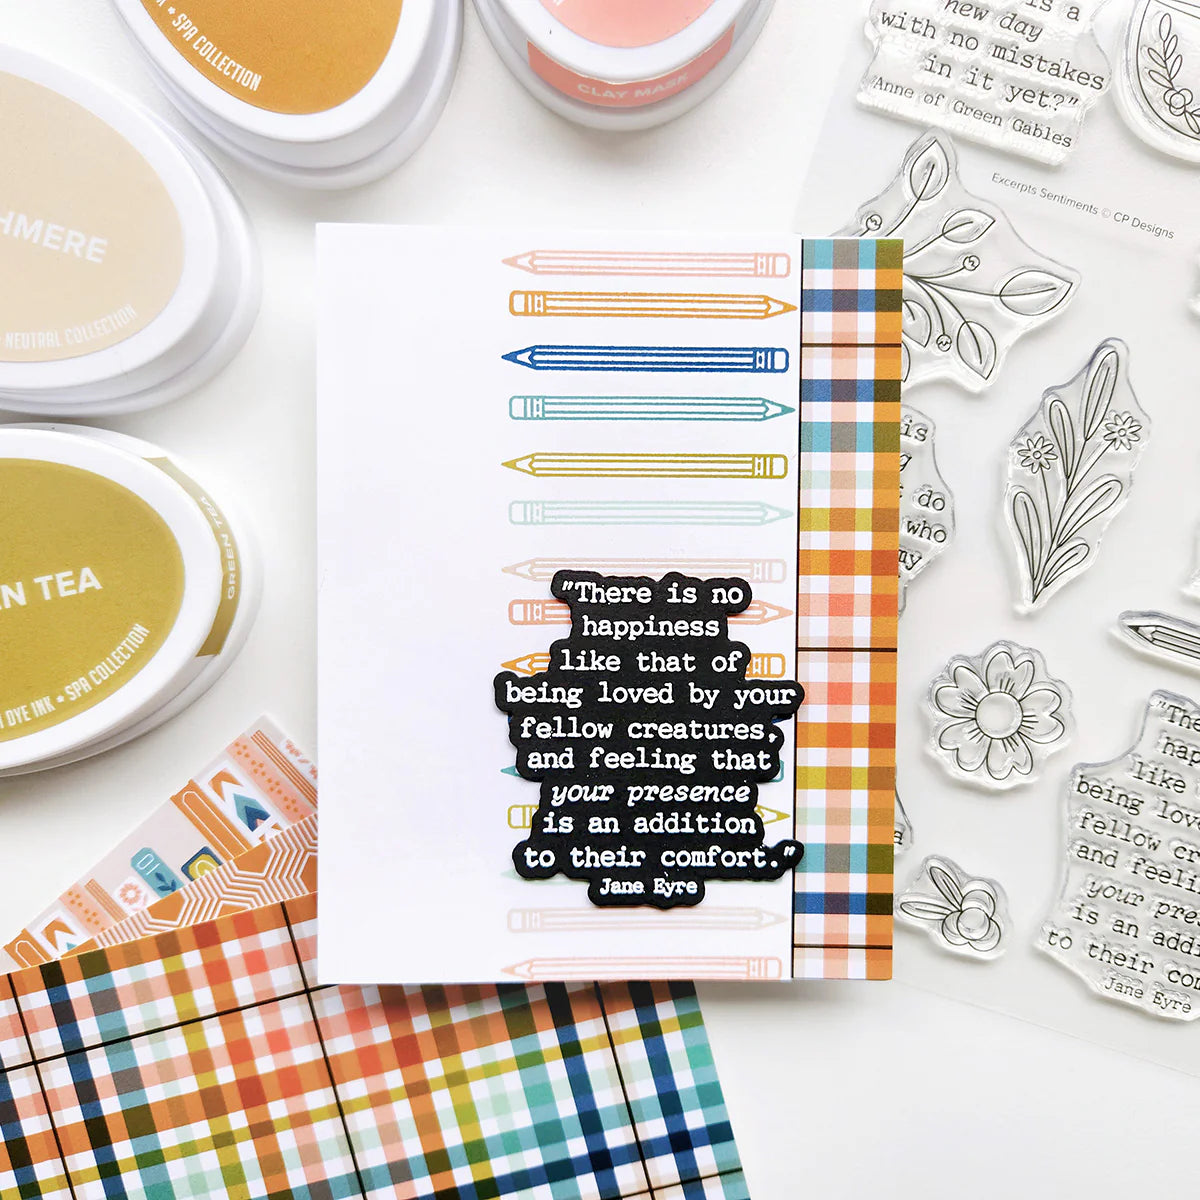 SPA COLLECTION
CLAY MASK
is a
new day
with no mistakes
in it yet?"
Anne of Green Gables
Excerpts Sentiments © CP Designs
NEUTRAL COLLECTION
"There is no
happiness
like that of
being loved by your
fellow creatures,
and feeling that
your presence
is an addition
to their comfort."
Jane Eyre
is
do
who
my
TEA
GREEN TEA
DYE INK * SPA COLLECTION
01
like
being
fellow
and
your
is an
to their
Jane Eyre